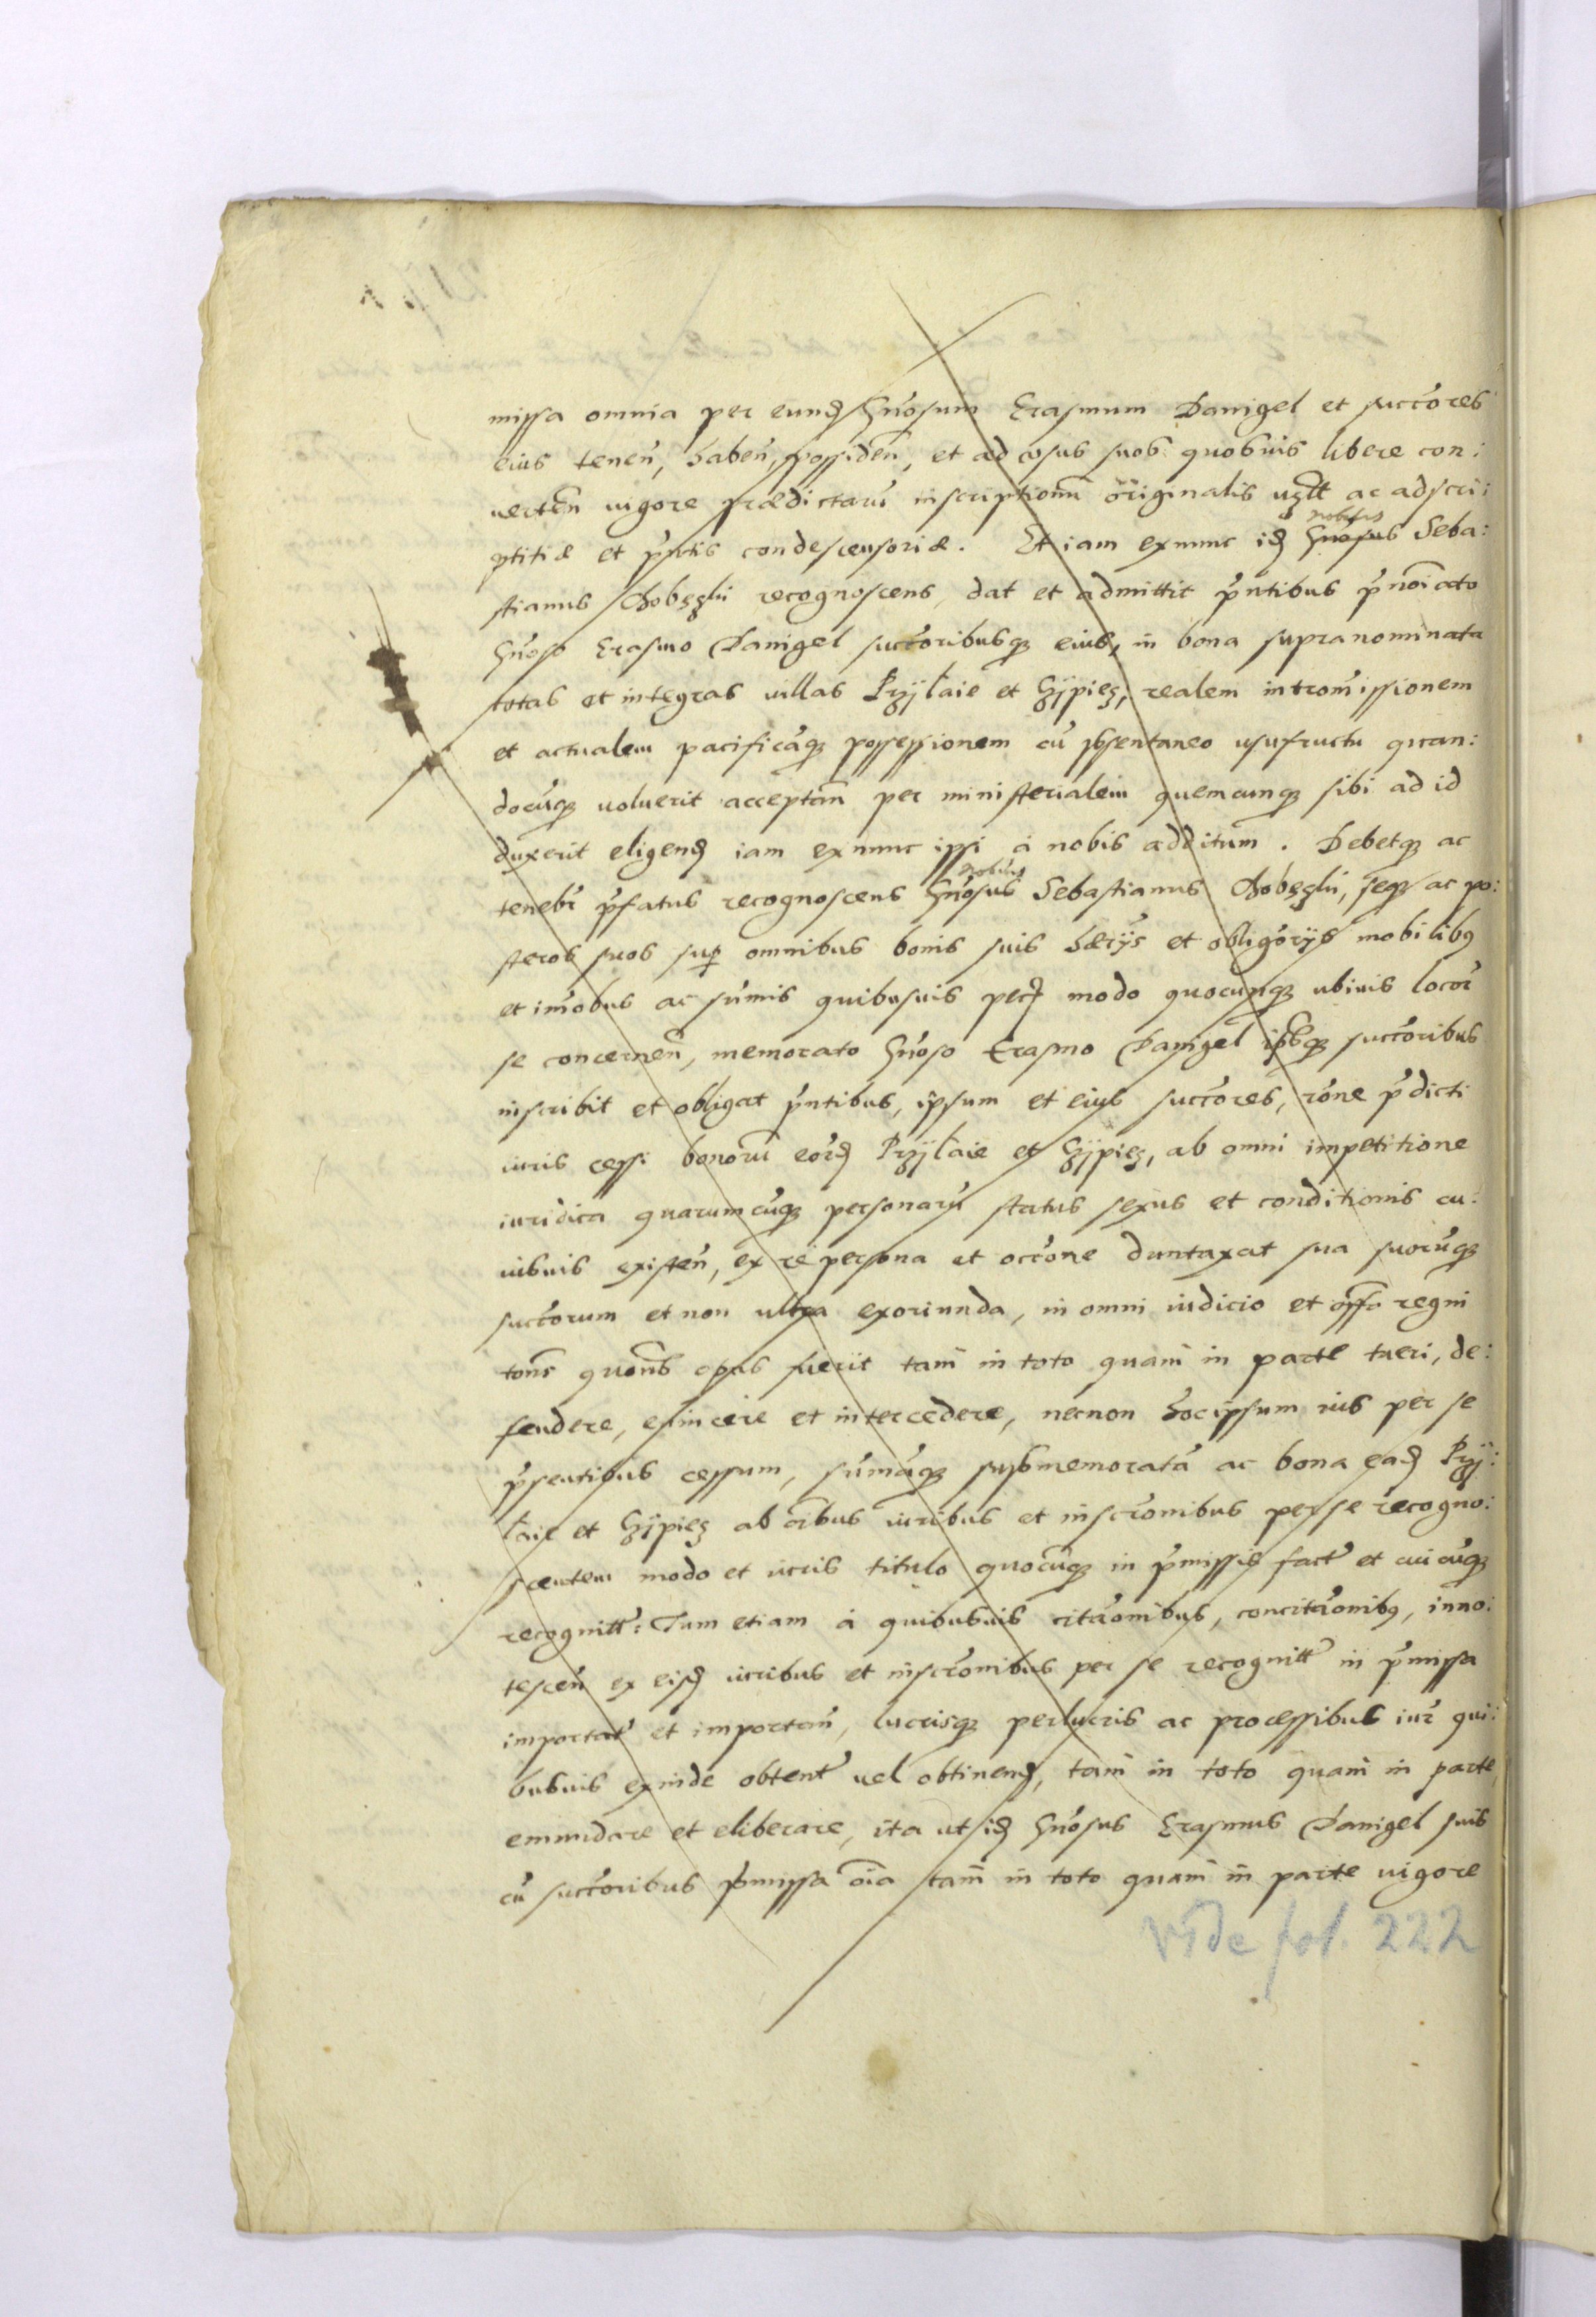 missa omnia per eund Gnosum Erasmum Danigel et succores
eius tenen, haben, possiden, et ad usus suos quosuis libere con:
uerten uigore prædictaru inscriptionu originalis ac adscri:
ptitiæ et pntis condescensoriæ. Et iam exnunc id Gnosus nobilis Seba:
stianus recognoscens, dat et admittit pntibus pnoiato
Gnoso Erasmo Danigel succoribusq eius, in bona supranominata
totas et integras uillas Przÿłaie et realem intromissionem
et actualem pacificaq possessionem cu usufructu quan:
docuq uoluerit acceptan per ministerialem quemcunque sibi ad id
duxerit eligend iam exnunc ipsi à nobis additum. Debetq ac
tenebr pfatus recognoscens Gnosus nobilis Sebastianus seq ac po:
steros suos sup omnibus bonis suis hærijs et obligorijs mobilibq
et imobus ac sumis quibusuis pecu modo quocunq ubiuis locor
se concernen, memorato Gnoso Erasmo Danigel ipsq succoribus
inscribit et obligat pntibus, ipsum et eius succores, rone pdicti
iuris cessi bonoru eord Przÿłaie et ab omni impetitione
iuridica quarumcuq personaru status sexus et conditionis cu:
iusuis existen, ex re persona et occone duntaxat sua suoruq
succorum et non ultra exoriunda, in omni iudicio et offo regni
tons quons opus fuerit tam in toto quam in parte tueri, de:
fendere, euincere et intercedere, necnon hocipsum ius per se
psentibus cessum, sumaq memorata ac bona ead Przÿ:
łaie et ab oibus iuribus et inscronibus per se recogno:
scentem modo et iuris titulo quocuq in pmissis fact et cuicuq
recognitt: Tum etiam à quibusuis citaonibus, concitaonibq, inno:
tescen ex eisd iuribus et inscronibus per se recognitt in pmissa
importat et importan, lucrisq perlucris ac processibus iur qui:
busuis exinde obtent uel obtinend, tam in toto quam in parte
emundare et eliberare, ita ut id Gnosus Erasmus Danigel suis
cu succoribus pmissa oia tam in toto quam in parte uigore
vide fol. 222